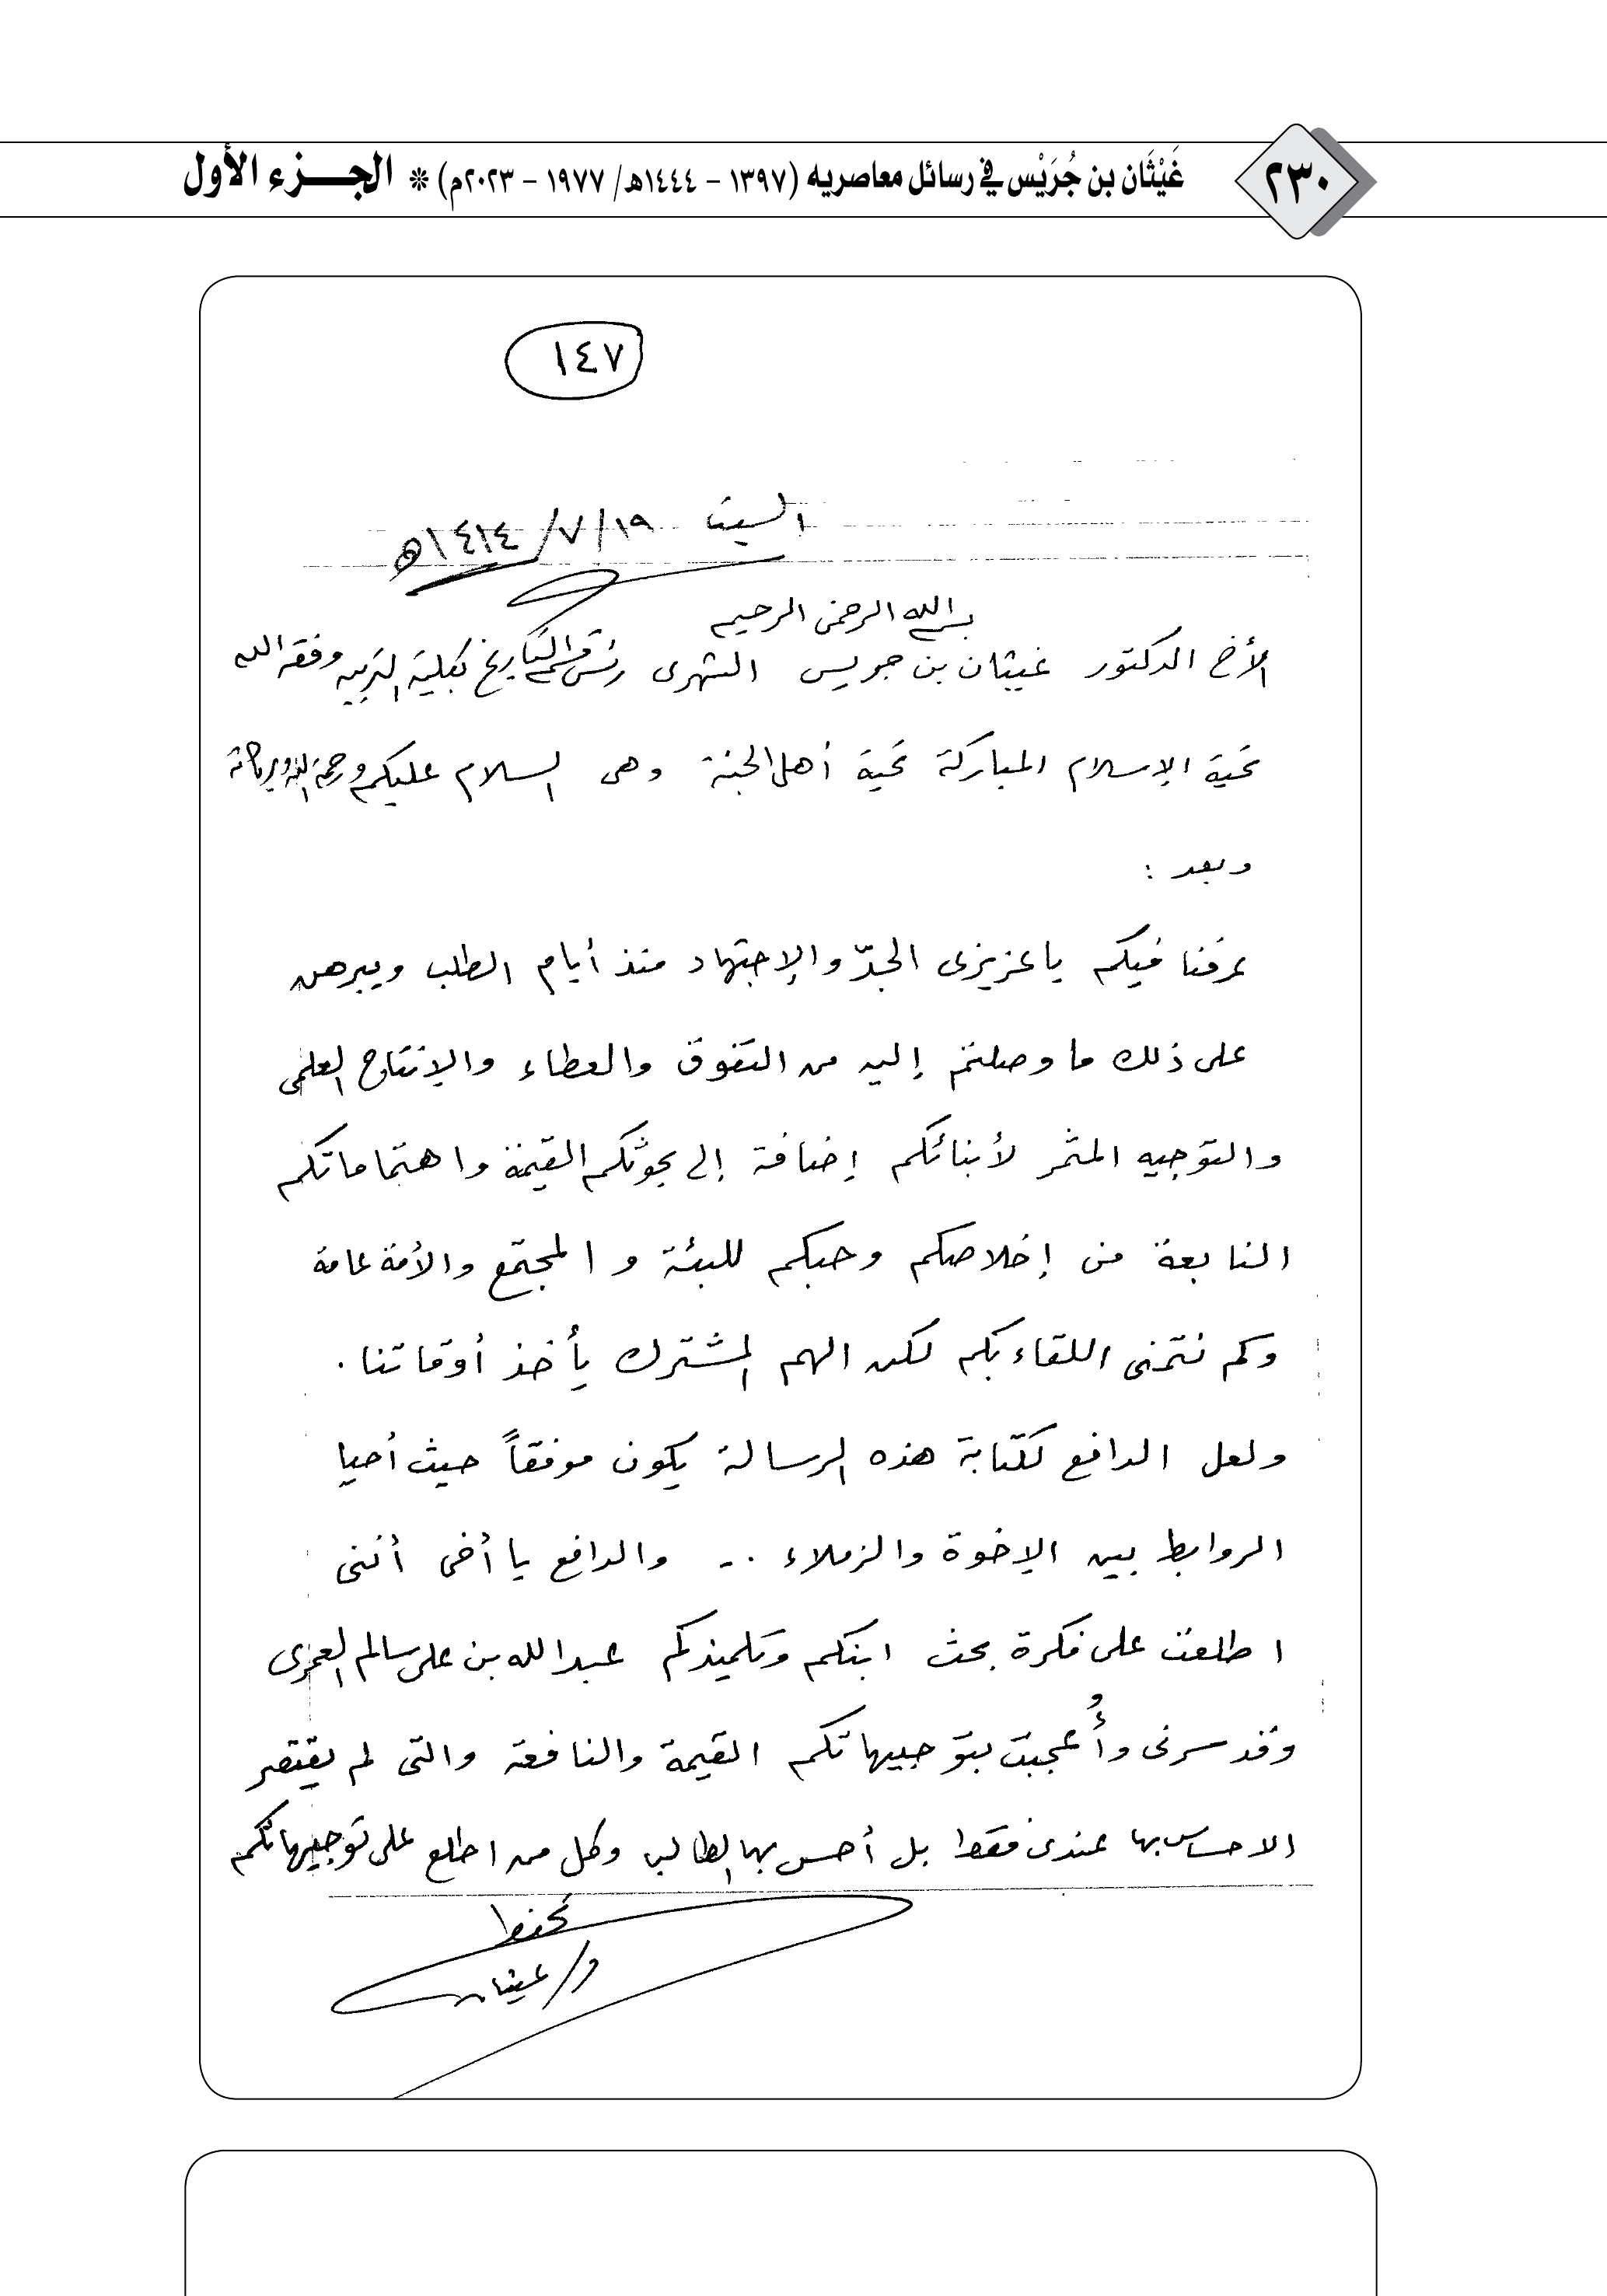 ٢٣٠
غَيْثَان بن جُرَيْس في رسائل معاصريه (١٣٩٧ - ١٤٤٤هـ/ ١٩٧٧ - ٢٠٢٣م) ❊ الجـــزء الأول
١٤٧
السبت ١٩/٧/١٤١٤هـ
بسم الله الرحمن الرحيم
الأخ الدكتور غيثان بن جريس الشهرى رئيس قسم التاريخ بكلية التربيه وفقه الله
تحية الإسلام المباركة تحية أهل الجنة وهى السلام عليكم ورحمة الله وبركاته
وبعد :
عرفنا فيكم يا عزيزى الجدّ والإجتهاد منذ أيام الطلب ويبرهن
على ذلك ما وصلتم إليه من التفوق والعطاء والإنتاج العلمى
والتوجيه المثمر لأبنائكم إضافة إلى بحوثكم القيمة واهتماماتكم
النابعة من إخلاصكم وحبكم للبئة و المجتمع والأمة عامة
وكم نتمنى اللقاء بكم لكن الهم المشترك يأخذ أوقاتنا .
ولعل الدافع لكتابة هذه الرسالة يكون موفقاً حيث أحيا
الروابط بين الإخوة والزملاء .. والدافع يا أخى أننى
اطلعت على فكرة بحث ابنكم وتلميذكم عبدالله بن على سالم العمرى
وقد سرنى وأُعجبت بتوجيهاتكم القيمة والنافعة والتى لم يقتصر
الاحساس بها عندى فقط بل أحس بها الطالب وكل من اطلع على توجيهاتكم
تحفظ
د/ غيثان